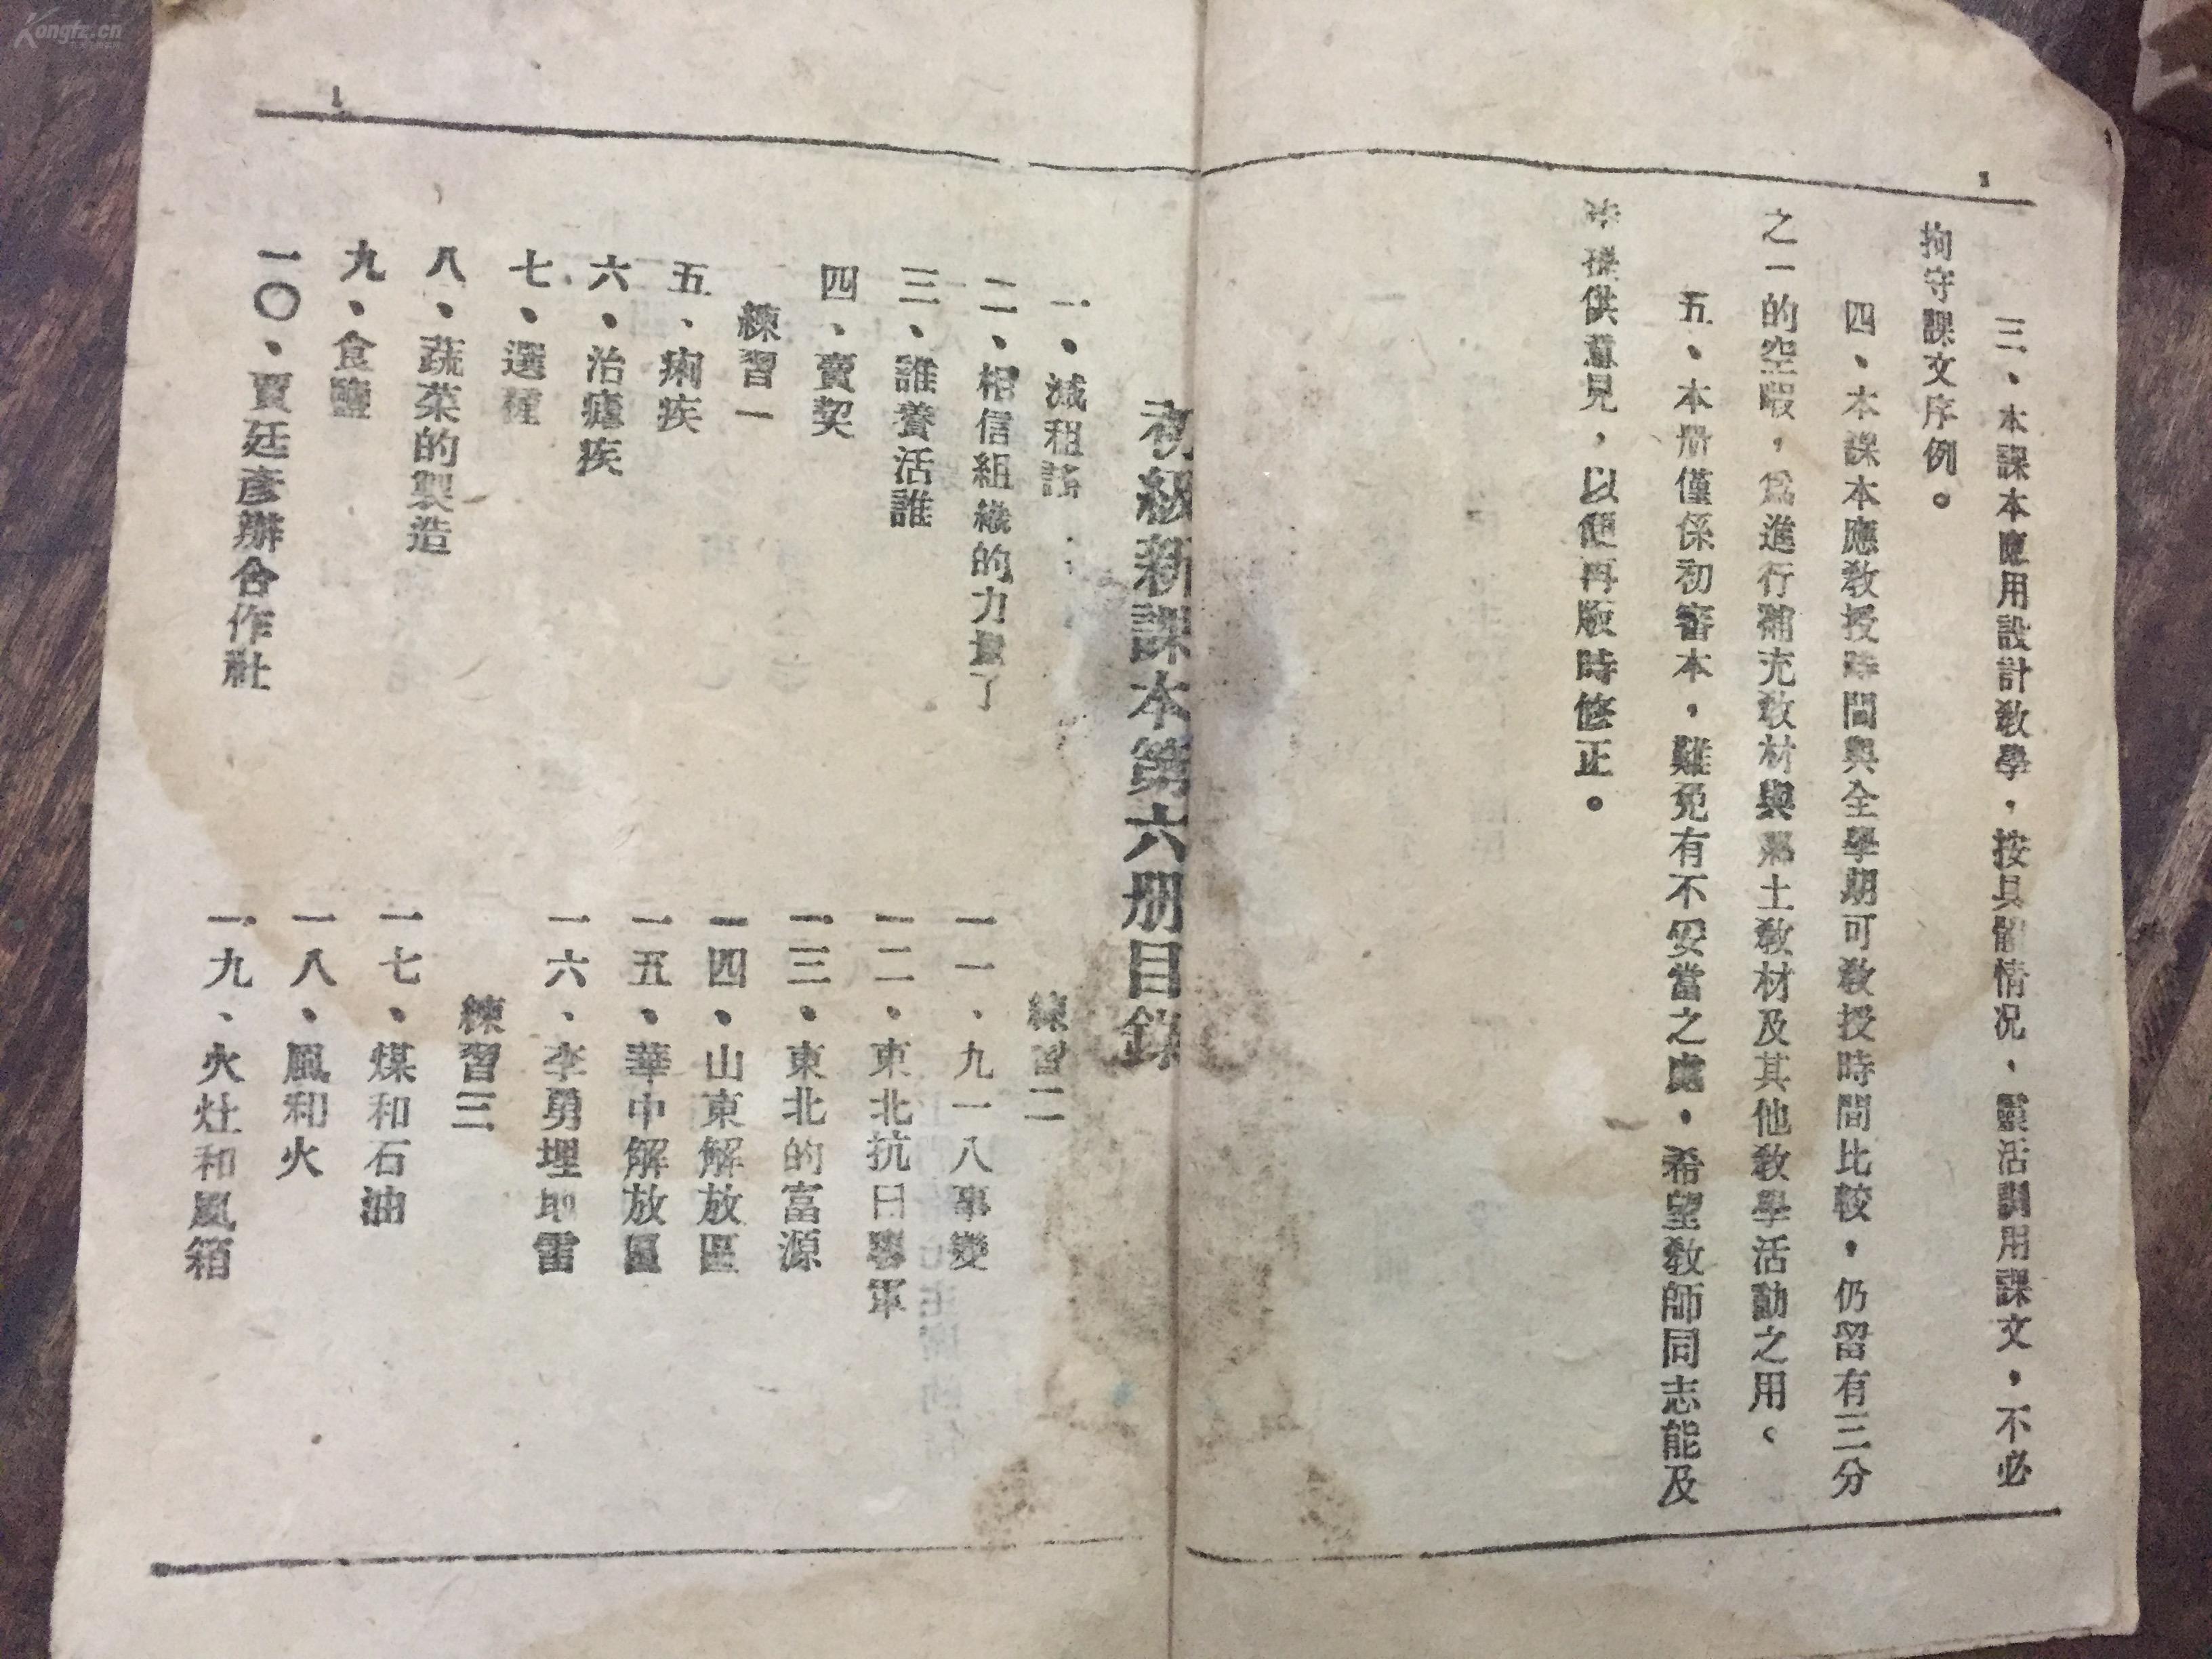 Kongfz.cn
1
三、本課本應用設計教學，按具體情況、靈活調用課文，不必
拘守課文序例。
四、本課本應教授時間與全學期可教授時間比較，仍留有三分
之一的空暇，爲進行補充教材與鄉土教材及其他教學活動之用。
五、本册僅係初審本，難免有不妥當之處，希望教師同志能及
時提供意見，以便再版時修正。
1
初級新課本第六册目錄
一、減租謠
二、相信組織的力量了
三、誰養活誰
四、賣契
練習一
五、痢疾
六、治瘧疾
七、選種
八、蔬菜的製造
九、食鹽
一〇、賈廷彥辦合作社
練習二
一一、九一八事變
一二、東北抗日聯軍
一三、東北的富源
一四、山東解放區
一五、華中解放區
一六、李勇埋地雷
練習三
一七、煤和石油
一八、風和火
一九、火灶和風箱